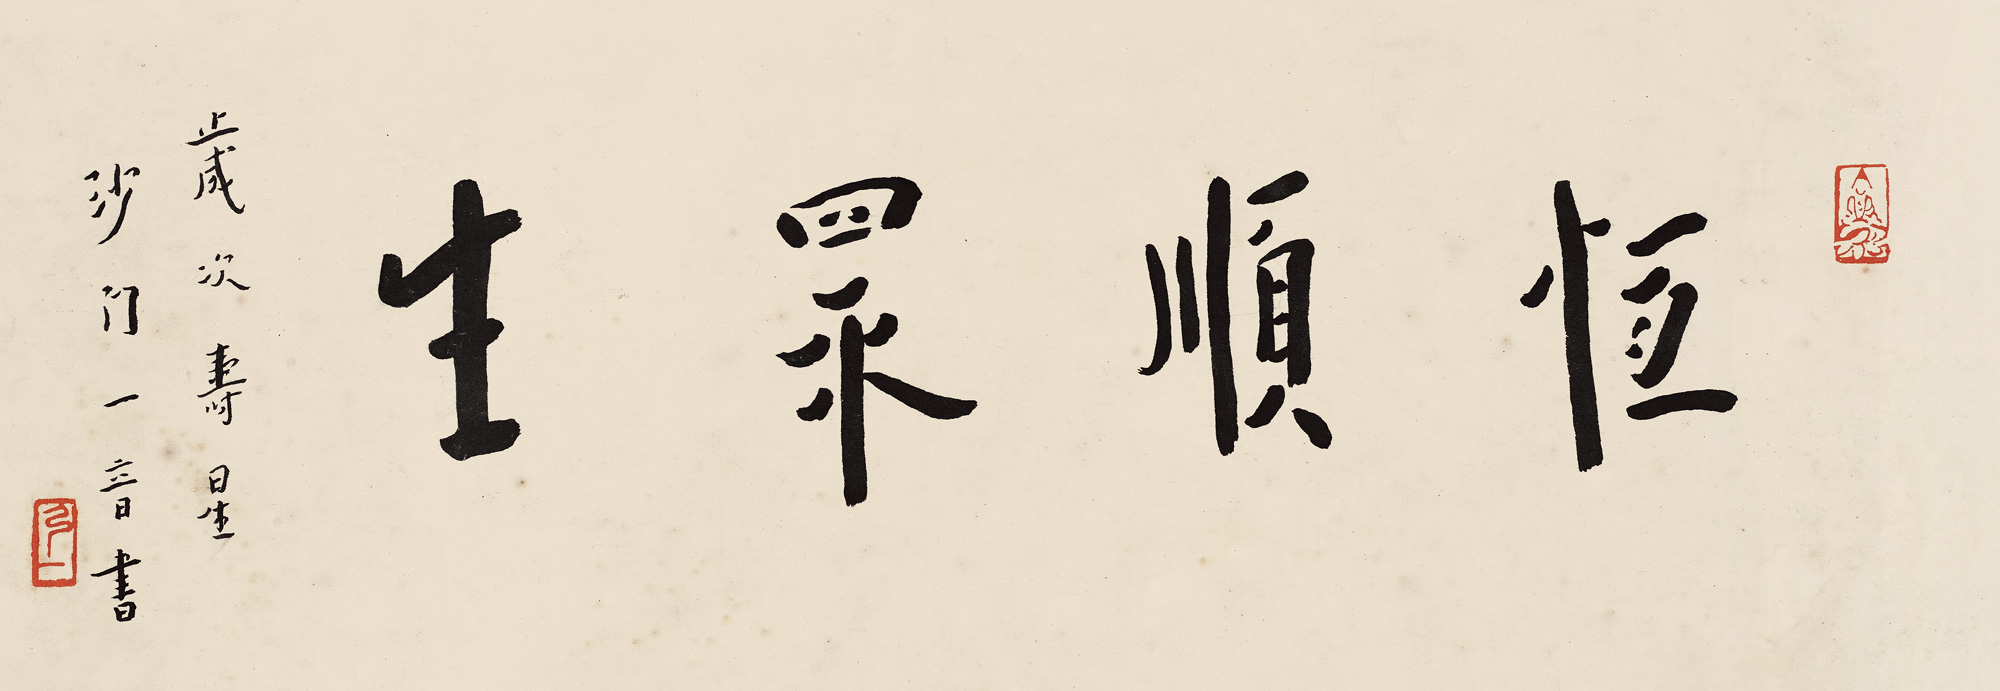 恆順眾生
歲次壽星
沙門一音書